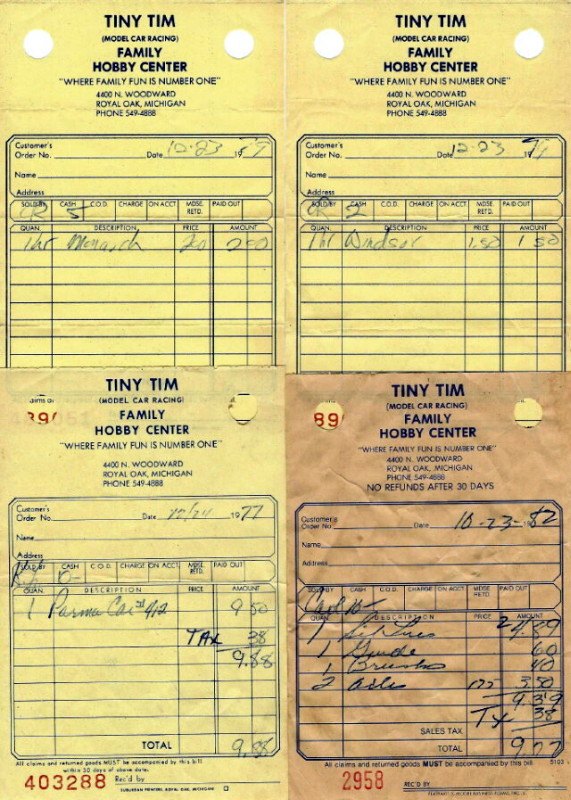 TINY TIM
(MODEL CAR RACING)
FAMILY
HOBBY CENTER
"WHERE FAMILY FUN IS NUMBER ONE"
4400 N. WOODWARD
ROYAL OAK, MICHIGAN
PHONE 549-4888
Customer's
Order No. Date 12-23 1979
Name
Address
SOLD BY CASH C.O.D. CHARGE ON ACCT. MDSE. RETD. PAID OUT
CR 5
QUAN. DESCRIPTION PRICE AMOUNT
1 hr Monarch 200 2 00
TINY TIM
(MODEL CAR RACING)
FAMILY
HOBBY CENTER
"WHERE FAMILY FUN IS NUMBER ONE"
4400 N. WOODWARD
ROYAL OAK, MICHIGAN
PHONE 549-4888
Customer's
Order No. Date 12-23 1979
Name
Address
SOLD BY CASH C.O.D. CHARGE ON ACCT. MDSE. RETD. PAID OUT
CR
QUAN. DESCRIPTION PRICE AMOUNT
1 hr Windsor 1.50 1 50
TINY TIM
(MODEL CAR RACING)
FAMILY
HOBBY CENTER
"WHERE FAMILY FUN IS NUMBER ONE"
4400 N. WOODWARD
ROYAL OAK, MICHIGAN
PHONE 549-4888
Customer's
Order No. Date 12/24 1977
Name
Address
SOLD BY CASH C.O.D. CHARGE ON ACCT. MDSE. RETD. PAID OUT
10-
QUAN. DESCRIPTION PRICE AMOUNT
1 Parma Car #412 9 50
TAX 38
9.88
TOTAL 9.88
All claims and returned goods MUST be accompanied by this bill
within 30 days of above date.
403288 Rec'd by
SUBURBAN PRINTERS, ROYAL OAK, MICHIGAN
TINY TIM
(MODEL CAR RACING)
FAMILY
HOBBY CENTER
"WHERE FAMILY FUN IS NUMBER ONE"
4400 N. WOODWARD
ROYAL OAK, MICHIGAN
PHONE 549-4888
NO REFUNDS AFTER 30 DAYS
Customer's
Order No. Date 10-23-1982
Name
Address
SOLD BY CASH C.O.D. CHARGE ON ACCT. MDSE. RETD. PAID OUT
10-
QUAN. DESCRIPTION PRICE AMOUNT
1 4.89
1 Guide 60
1 Brushes 40
2 Axles 175 3.50
9.39
Tx 38
SALES TAX
TOTAL 9 77
All claims and returned goods MUST be accompanied by this bill 5103
2958 REC'D BY